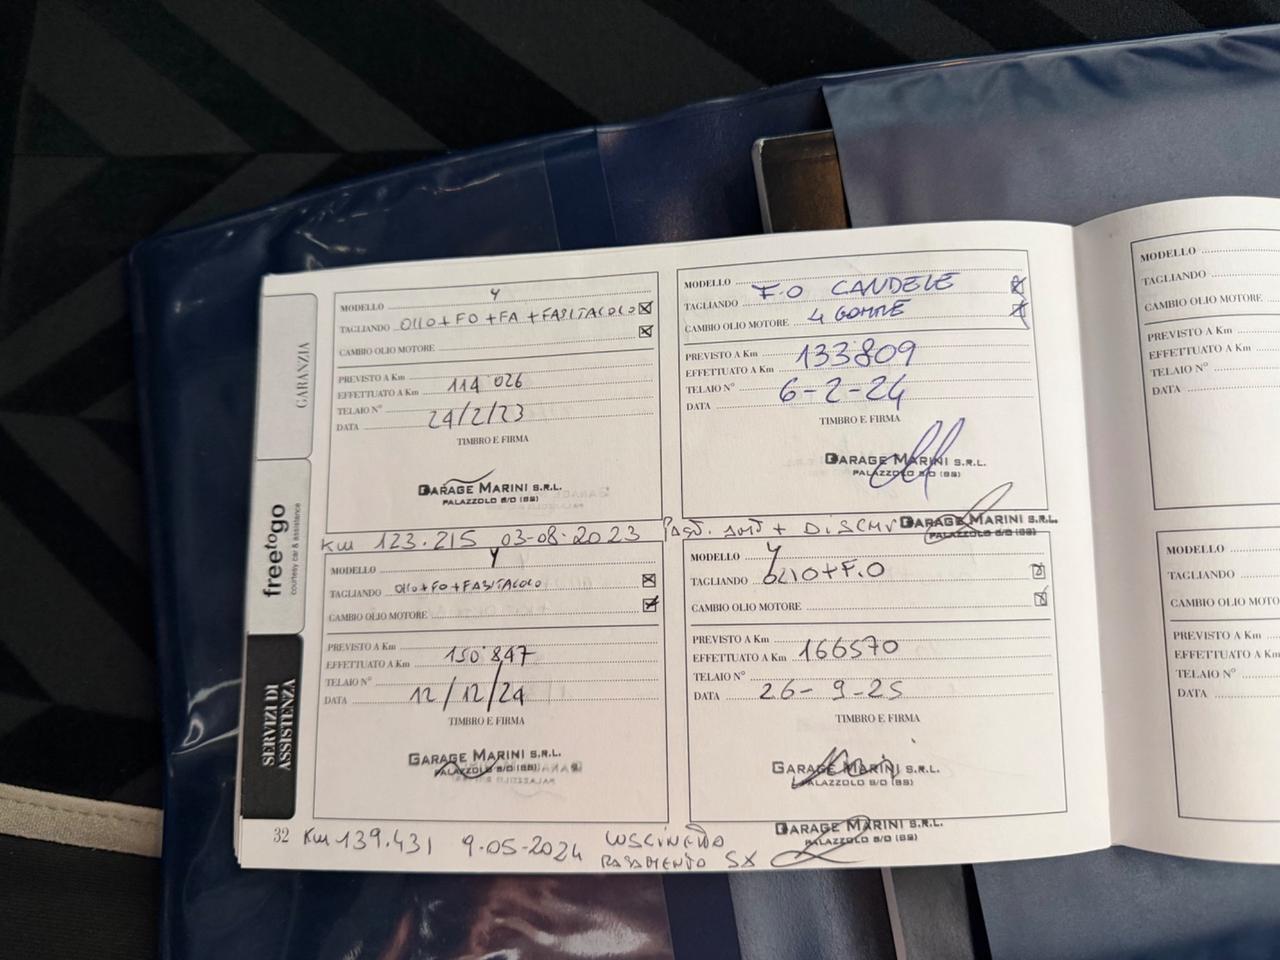 GARANZIA
freetogo
courtesy car & assistance
SERVIZI DI
ASSISTENZA
MODELLO Y
TAGLIANDO OLIO+FO+FA+FASITACOLO
CAMBIO OLIO MOTORE
PREVISTO A Km
EFFETTUATO A Km 114 026
TELAIO N°
DATA 24/2/23
TIMBRO E FIRMA
GARAGE MARINI S.R.L.
PALAZZOLO S/O (BS)
MODELLO
TAGLIANDO F.O CANDELE
CAMBIO OLIO MOTORE 4 GOMME
PREVISTO A Km
EFFETTUATO A Km 133809
TELAIO N°
DATA 6-2-24
TIMBRO E FIRMA
GARAGE MARINI S.R.L.
PALAZZOLO S/O (BS)
Km 123.215 03-08-2023 PAST. ANT + DISCHI
GARAGE MARINI S.R.L.
PALAZZOLO S/O (BS)
MODELLO Y
TAGLIANDO OLIO+FO+FASITACOLO
CAMBIO OLIO MOTORE
PREVISTO A Km
EFFETTUATO A Km 150 847
TELAIO N°
DATA 12/12/24
TIMBRO E FIRMA
GARAGE MARINI S.R.L.
PALAZZOLO S/O (BS)
MODELLO Y
TAGLIANDO OLIO+F.O
CAMBIO OLIO MOTORE
PREVISTO A Km
EFFETTUATO A Km 166570
TELAIO N°
DATA 26-9-25
TIMBRO E FIRMA
GARAGE MARINI S.R.L.
PALAZZOLO S/O (BS)
32 Km 139.431 9-05-2024 CUSCINETTO
SX
GARAGE MARINI S.R.L.
MODELLO
TAGLIANDO
CAMBIO OLIO MOTORE
PREVISTO A Km
EFFETTUATO A Km
TELAIO N°
DATA
MODELLO
TAGLIANDO
CAMBIO OLIO MOTO
PREVISTO A Km
EFFETTUATO A Km
TELAIO N°
DATA